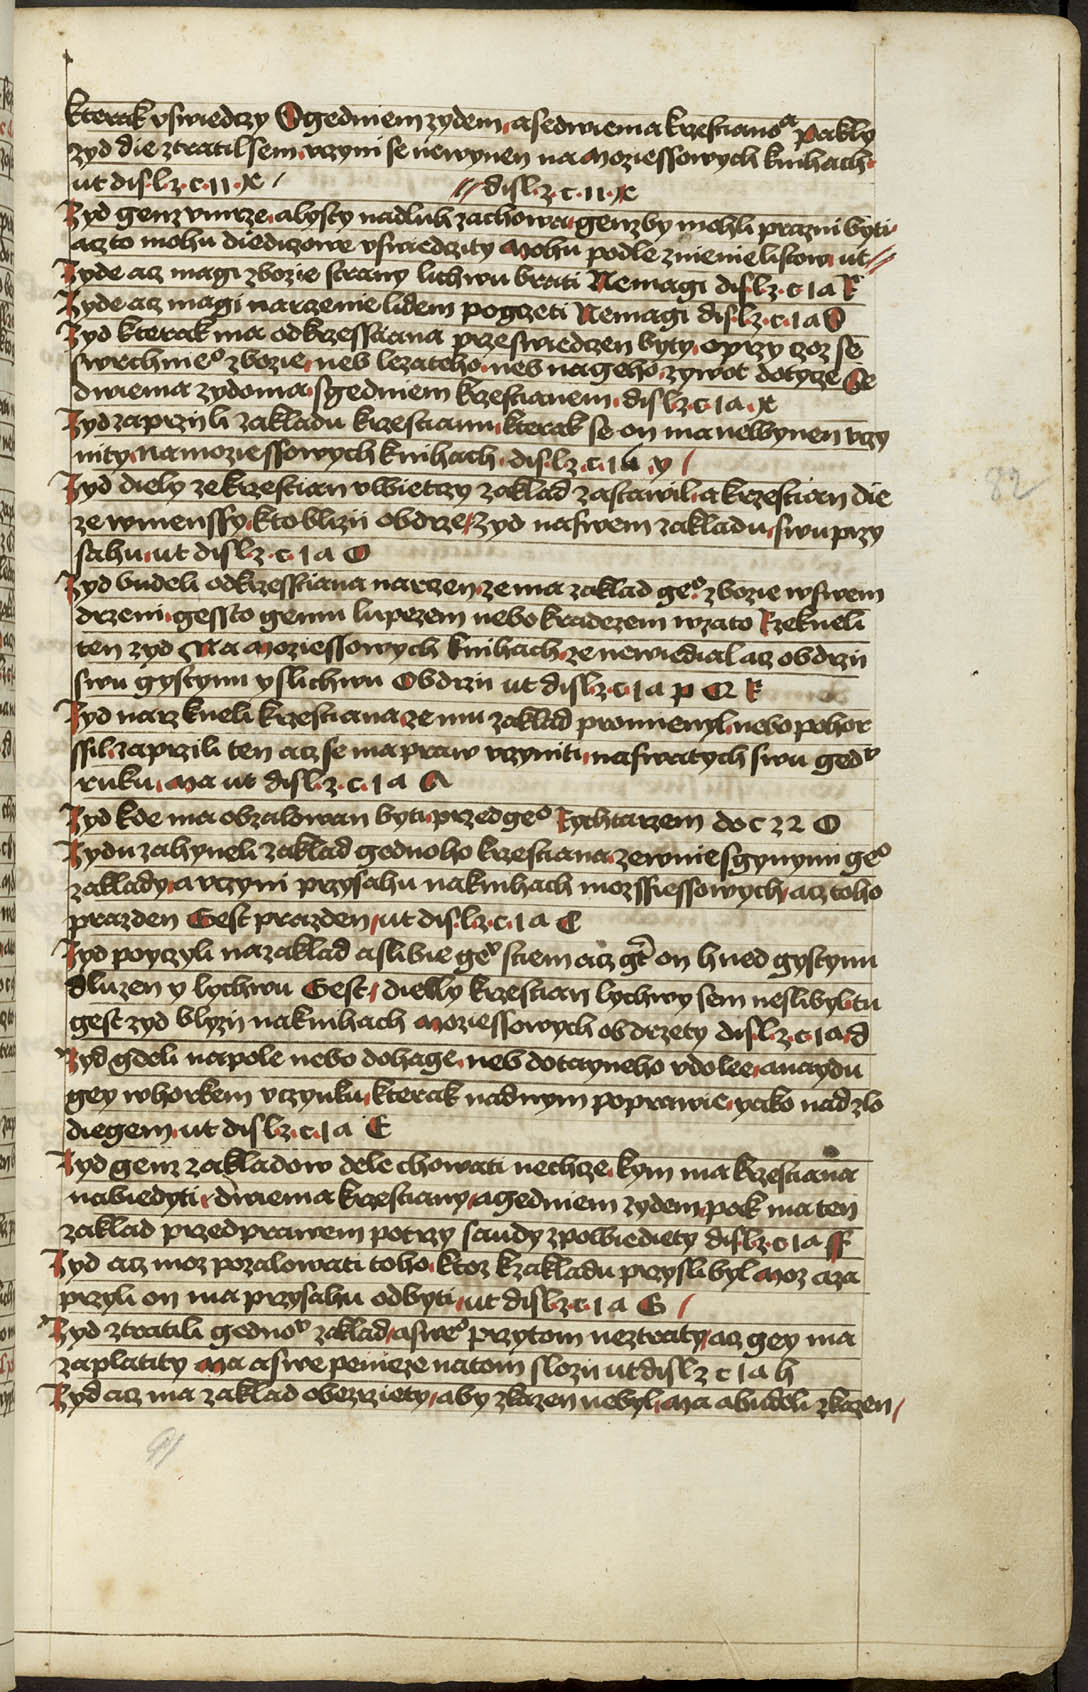 kterak vswiedczy S gedniem zydem a sedwiema krzestianoa Pakly
zyd die ztratil sem vczyni se newynen na Moziessowych knihach
ut dis l z c 11 x
dis l z c 11 x
Zyd genz vmrze a lysty nadluh zachowa genz by mohli prazni byti
acz to mohu diediczowe vswiedczity Mohu podle znienie listow ut
Zyde acz magi zbozie strawy lichwu brati Nemagi dis l z c 1a R
Zyde acz magi narzenie lidem pogczeti Nemagi dis l z c 1a S
Zyd kterak ma od krzestiana przeswiedczen byty oprzy czoz se
swrchnieo zbozie neb lezateho neb nageho zywot dotycze Se
dwiema zydoma s gedniem krzestianem dis l z c 1a x
Zyd zaprzili zakladu krzestianu kterak se on ma newynen vczy
nity na moziessowych knihach dis l z c 1a y
Zyd diely ze krzestian vwietczy zaklad zastawil a krzestian die
ze wmenssy kto blizii obdrze Zyd na swem zakladu swu przy
sahu ut dis l z c 1a O
Zyd budeli od krzesstiana narczen ze ma zaklad geo zbozie wswem
drzeni gessto gemu lupezem nebo kradezem wzato Rzekneli
ten zyd Na Moziessowych knihach ze newiedial acz obdrzii
swu gystynu y s lichwu Obdrzii ut dis l z c 1a p Q R
Zyd narzkneli krzestiana ze mu zaklad promienyl nebo pohor
ssil zaprzili ten acz se ma praw vczyniti na swatych swu gedu
ruku Ma ut dis l z c 1a A
Zyd kde ma obzalowan byti przed geo Rychtarzem do c 22 O
Zydu zahyneli zaklad gednoho krzestiana ze wnie s gynymi geo
zaklady a vczyni przysahu na knihach mozssiessowych acz toho
prazden Gest prazden ut dis l z c 1a C
Zyd poyczyli na zaklad a slibie geo stiem acz gt on hned gystynu
dluzen y lychwu Gest dielly krzestian lychwy sem neslibyl tu
gest zyd blyzii na knihach Moziessowych obdrzety dis l z c 1a d
Zyd gdeli na pole nebo do hage neb do tayneho vdolee a naydu
gey whorkem vczynku kterak nad nym poprawie yako nad zlo
diegem ut dis l z c 1a E
Zyd genz zakladow dele chowati nechcze kym ma krzestiana
nabiedyti dwiema krzestiany a gedniem zydem pak ma ten
zaklad przed prawem po trzy saudy zpowiediety dis l z c 1a ff
Zyd acz moz pozalowati toho ktoz k zakladu przyslibyl Moz a za
przyli on ma przysahu odbyti ut dis l z c 1a G
Zyd ztratili gednoo zaklad a sweo przytom neztraty acz gey ma
zaplatity Ma a swe penieze na tom slozii ut dis l z c 1a h
Zyd acz ma zaklad obezrziety aby zkazen nebyl Ma a budeli zkazen
82
91